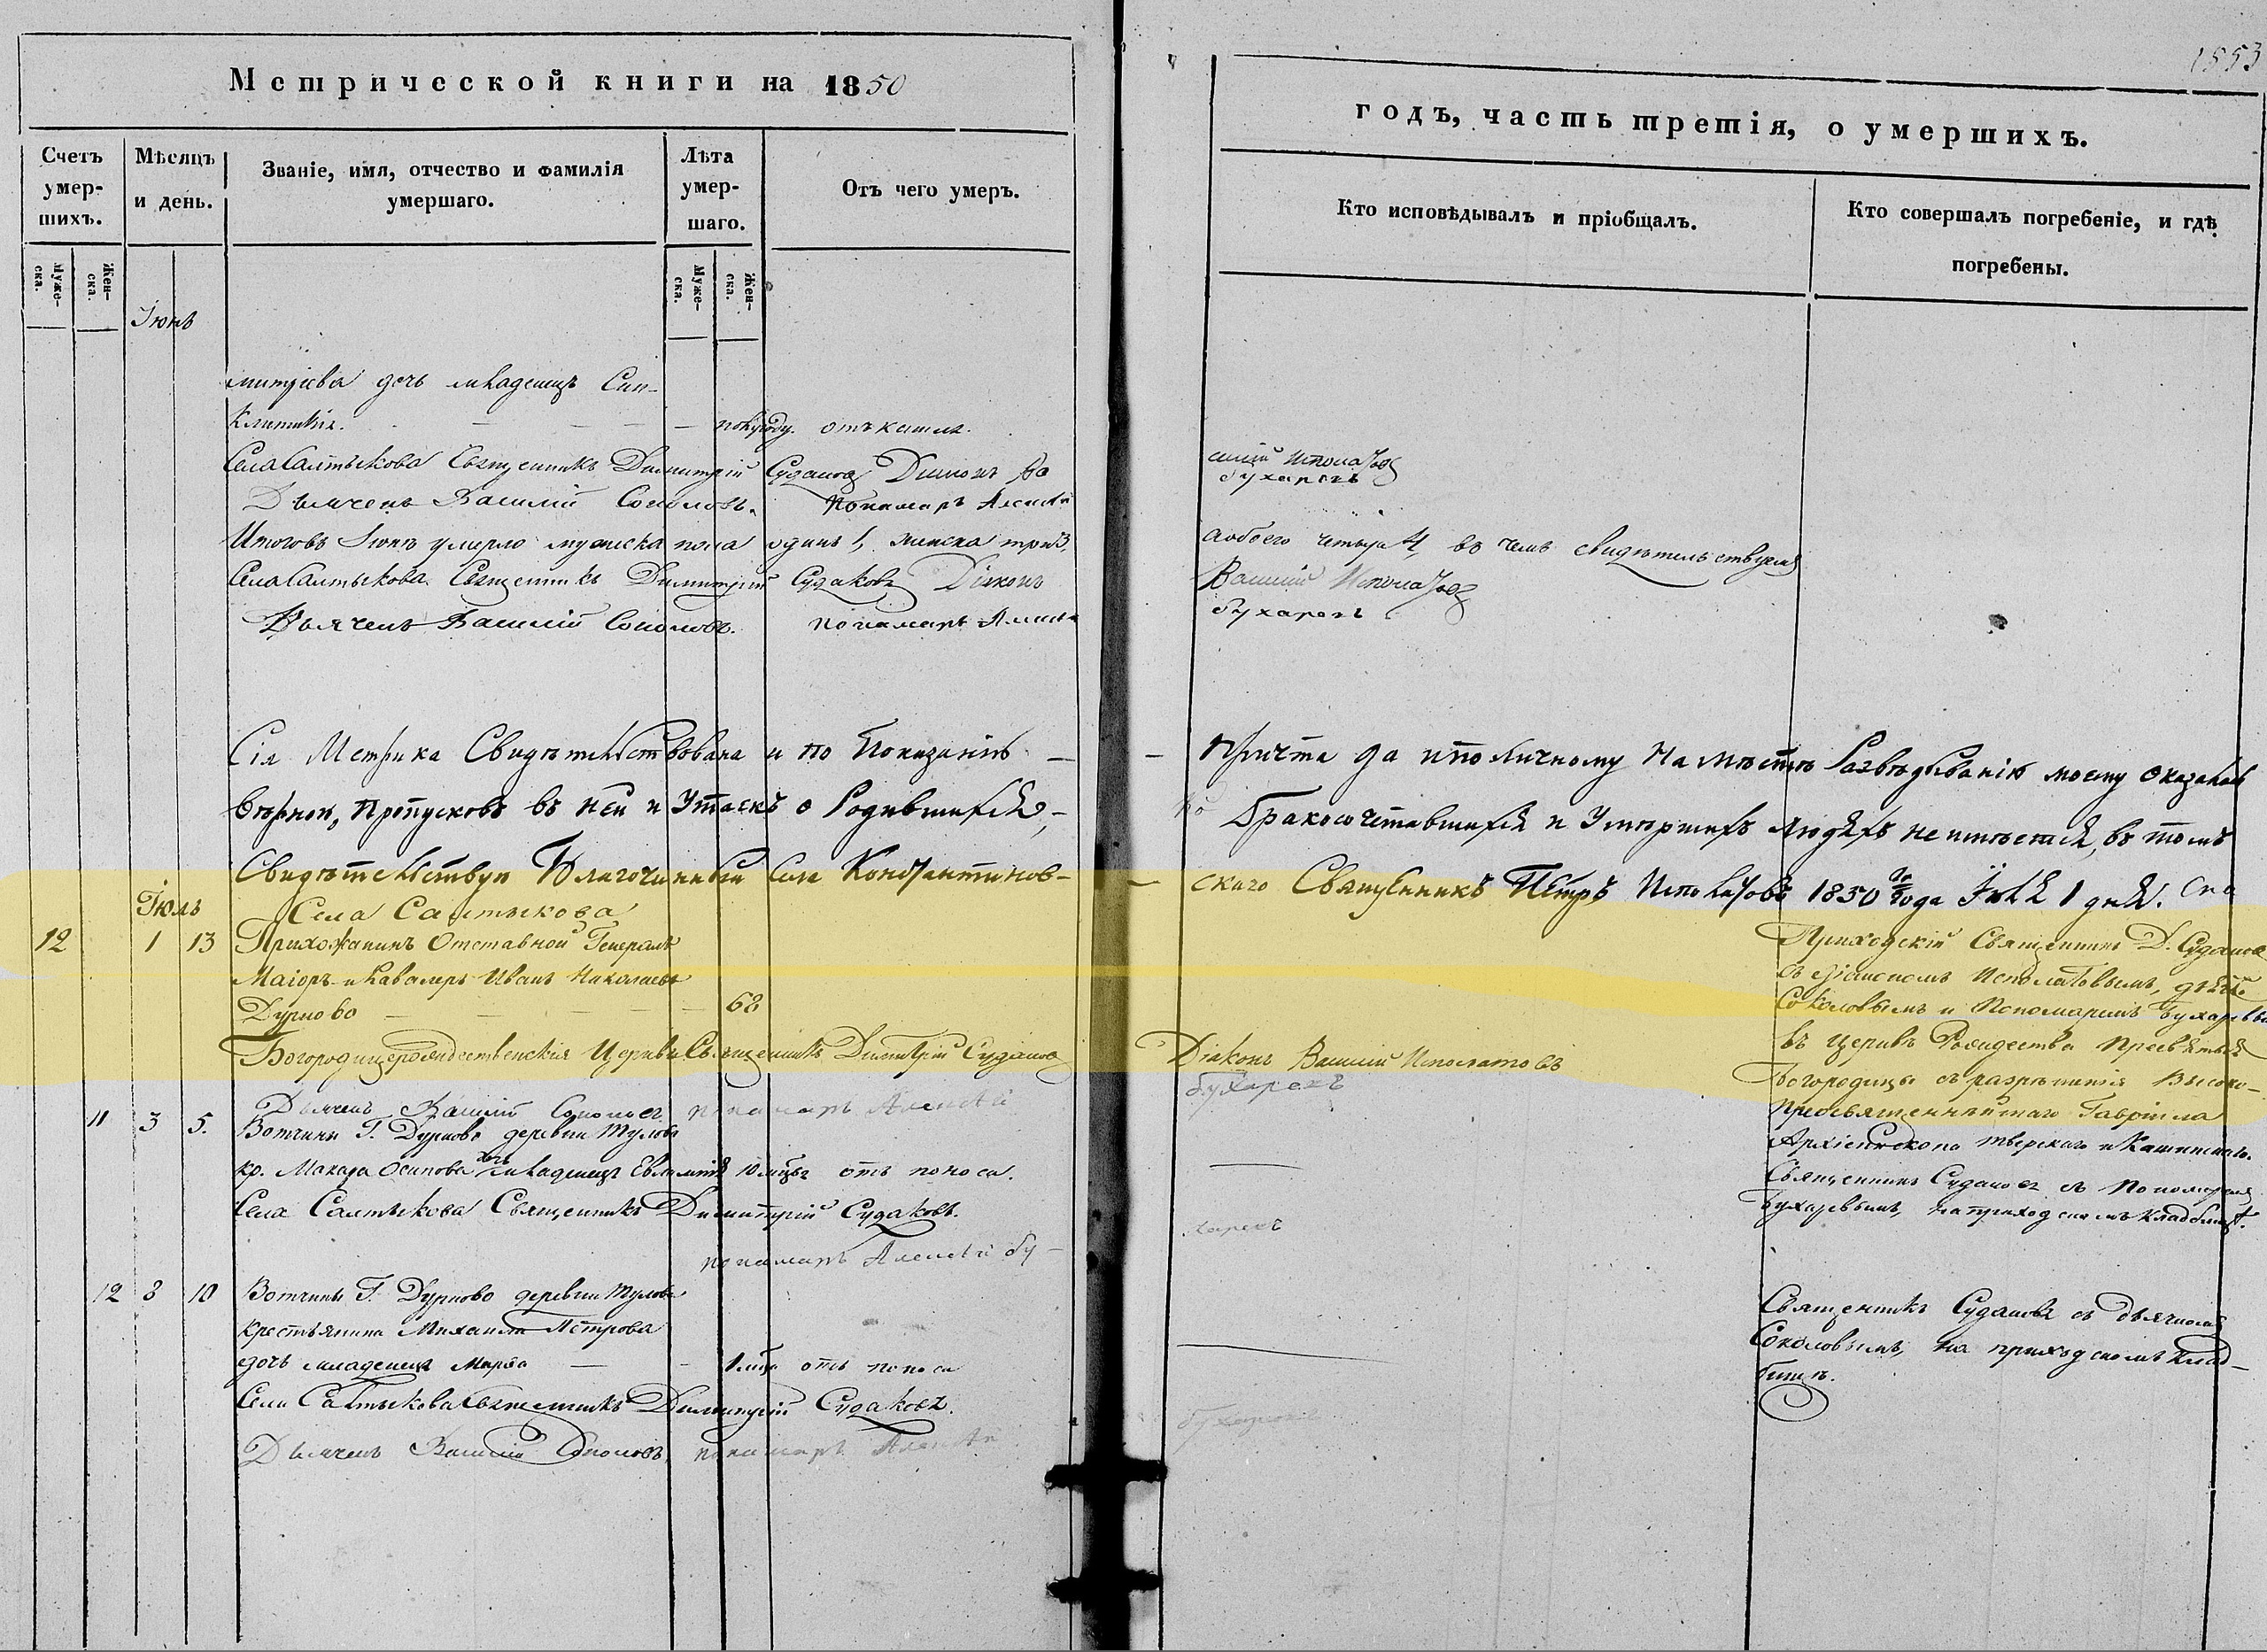 Метрической книги на 1850
годъ, часть третія, о умершихъ.
1853
Счетъ умер-шихъ.
Мѣсяцъ и день.
Званіе, имя, отчество и фамилія
умершаго.
Лѣта умер-шаго.
Отъ чего умеръ.
Кто исповѣдывалъ и пріобщалъ.
Кто совершалъ погребеніе, и гдѣ
погребены.
Муже-ска.
Жен-ска.
Муже-ска.
Жен-ска.
Іюнь
митріева дочь младенецъ Син-
клитикія. полугоду. отъ кашля.
Села Салтыкова Священникъ Димитрій Судаковъ Діаконъ Ва
силій Исполатовъ
Дьячекъ Василій Соколовъ. Пономарь Алексѣй
бухаревъ
Итого въ Іюнѣ умерло мужеска пола одинъ 1, женска три 3,
а обоего четыре 4, въ чемъ свидѣтельствуемъ
Села Салтыкова Священникъ Димитрій Судаковъ Діаконъ
Василій Исполатовъ
Дьячекъ Василій Соколовъ. пономарь Алексѣй
бухаревъ
Сія Метрика Свидѣтельствована и по Показанію
Причта да и по личному на мѣстѣ Развѣдыванію моему оказалась
вѣрною, Пропусковъ въ ней и Утаекъ о Родившихся,
Бракосочетавшихся и Умершихъ людяхъ не имѣется, въ томъ
Свидѣтельствую Благочинный Села Константинов-
скаго Священникъ Петръ Исполатовъ 1850 года Іюля 1 дня.
Іюль Села Салтыкова
12 1 13 Прихожанинъ Отставной Генералъ
Маіоръ и Кавалеръ Иванъ Николаевъ
Дурново 68
Приходскій Священникъ Д. Судаковъ
съ діакономъ Исполатовымъ, дьячк.
Соколовымъ и Пономаремъ Бухаревымъ
въ церкви Рождества Пресвятыя
Богородицы съ разрѣшенія Высоко-
преосвященнѣйшаго Гавріила
Архіепископа Тверскаго и Кашинскаго.
Богородицерождественскія Церкви Священникъ Димитрій Судаковъ
Діаконъ Василій Исполатовъ
Дьячекъ Василій Соколовъ пономарь Алексѣй
бухаревъ
11 3 5. Вотчины Г. Дурново деревни Тулова
кр. Макара Осипова дочь младенецъ Евлампія 10 мцъ отъ поноса.
Священникъ Судаковъ съ Пономаремъ
Бухаревымъ, на приходскомъ кладбищѣ.
Села Салтыкова Священникъ Димитрій Судаковъ.
пономарь Алексѣй бу-
харевъ
12 8 10 Вотчины Г. Дурново деревни Тулова
крестьянина Михаила Петрова
дочь младенецъ Марѳа 1 мца отъ поноса
Священникъ Судаковъ съ дьячкомъ
Соколовымъ, на приходскомъ клад-
бищѣ.
Села Салтыкова Священникъ Димитрій Судаковъ.
Дьячекъ Василій Соколовъ пономарь Алексѣй
бухаревъ